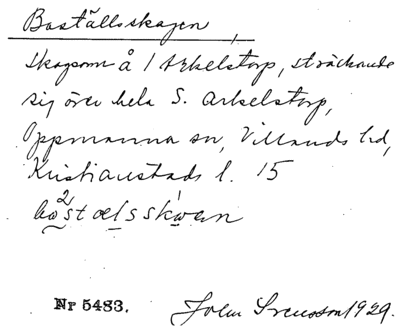 Boställsskogen
skogsomr å 1 Arkelstorp, sträckande
sig över hela S. Arkelstorp,
Oppmanna sn, Villands hd,
Kristianstads l. 15
Nr 5483. John Svensson 1929.